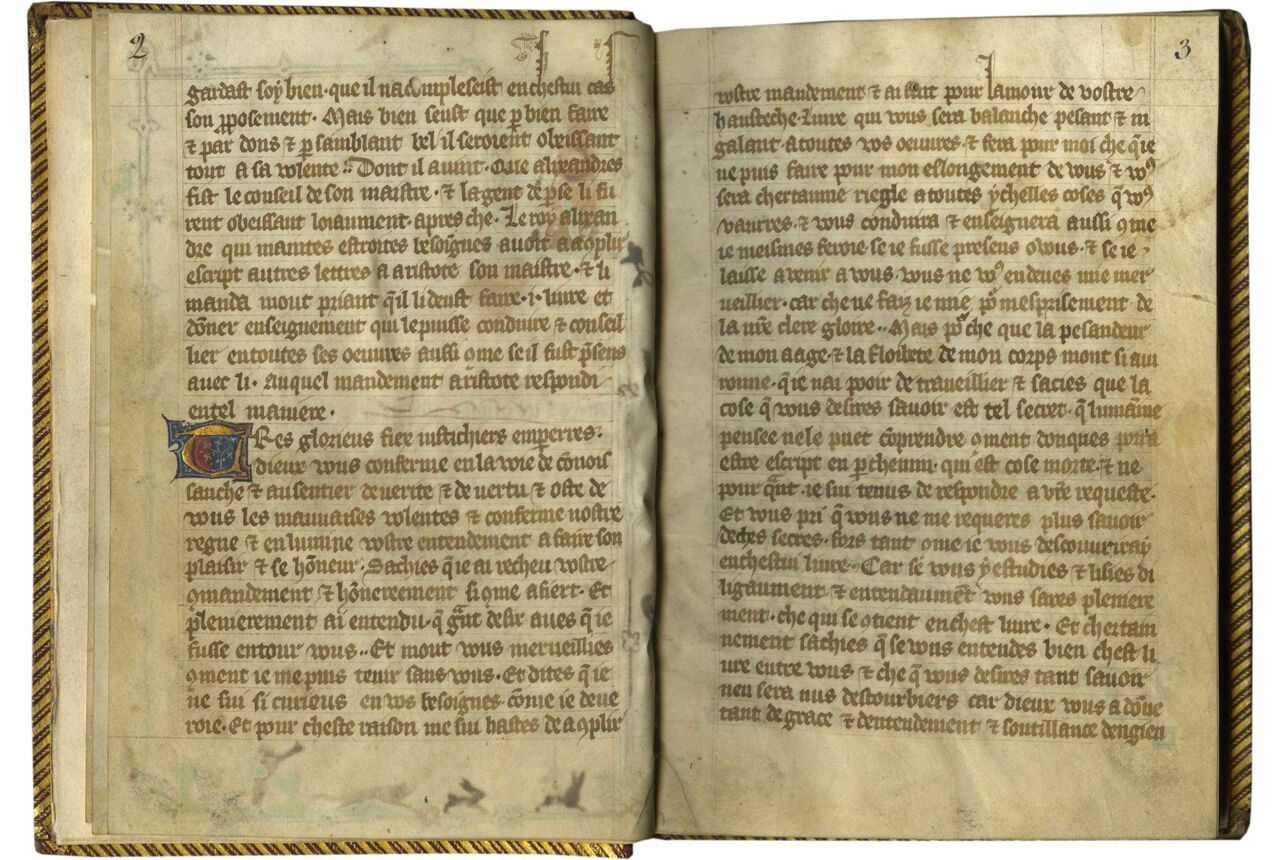 2
gardast soy bien · que il nacumpleseist en chestui cas
son pposement · Mais bien seust que p bien faire
& par dons & p samblant bel il seroient obeissant
tout a sa volente ·. Dont il avint · Que alixandres
fist le conseil de son maistre · & la gent de pse li fu
rent obeissant loiaument · apres che · Le roy alixan
dre qui maintes estroites besoignes avoit a aꝯplir
escript autres lettres a aristote son maistre · & li
manda mout priant q̄ il li deust faire · i · livre et
dōner enseignement qui le puisse conduire & conseil
lier en toutes ses oeuvres aussi ꝯme se il fust p̄sens
avec li · Auquel mandement aristote respondi
en tel maniere ·
TRes glorieus fier justichiers emperres ·
dieux vous conferme en la voie de cōnois
sanche & au sentier de verite & de vertu & oste de
vous les mauvaises volentes & conferme vostre
regne & enlumine vostre entendement a faire son
plaisir & se hōneur · Sachies que iai recheu vostre
ꝯmandement & hōnereement si ꝯme afiert · Et
plenierement ai entendu · q̄ grāt desir aves que ie
fusse entour vous ·. Et mout vous merveillies
ꝯment ie me puis tenir sans vous · Et dites que ie
ne sui si curieus en vos besoignes cōme ie deve
roie · Et pour cheste raison me sui hastes de aꝯplir
3
vostre mandement & ai fait pour lamour de vostre
hautesche · Livre qui vous sera balanche pesant & in
galant · a toutes vos oeuvres & fera pour moi che q̄ ie
ne puis faire pour mon eslongement de vous & voꝰ
sera chertainne riegle a toutes ychelles coses q̄ voꝰ
vaurres · & vous conduira & enseignera aussi ꝯme
ie meismes feroie se ie fusse presens o vous · & se ie
laisse a venir a vous · vous ne voꝰ en deves mie mer
veillier · car che ne faiz ie mie po᷑ mesprisement de
la vr̄e clere gloire ·. Mais po᷑ che que la pesandeur
de mon aage · & la floibete de mon corps mont si avi
ronne · q̄ ie nai pooir de traveillier & sacies que la
cose q̄ vous desires savoir est tel secret · q̄ lumāine
pensee ne le puet cōprendre ꝯment donques porra
estre escript en pchemin · qui est cose morte · & ne
pour q̄nt · ie sui tenus de respondre a vr̄e requeste ·
Et vous pri q̄ vous ne me requeres plus savoir
de ches secres · fors tant ꝯme ie vous descouvriray
en chestui livre ·. Car se vous y estudies & lisies di
ligaument & entendaumēt vous sares pleniere
ment · che qui se ꝯtient en chest livre · Et chertain
nement sachies q̄ se vous entendes bien chest li
vre entre vous & che q̄ vous desires tant savoir
nen sera nus destourbiers car dieux vous a dōne
tant de grace & dentendement & soutillance dengien